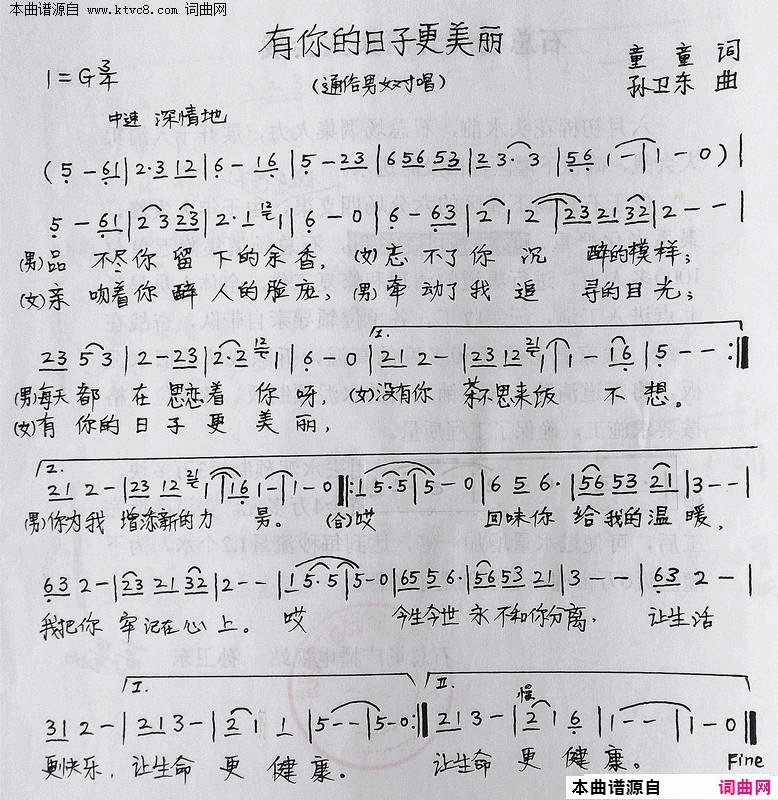 本曲谱源自
www.ktvc8.com 词曲网
有你的日子更美丽
1=G 3/4
(通俗男女对唱)
童童 词
孙卫东 曲
中速 深情地
(5 - 61|2·3 12|6 - 16|5 - 23|656553|23·3|56 1|1 - 0)|
5 - 61|23 23|2·1 12|6 - 0|6 - 63|2 1 2|232132|2 - -|
(男)品 不尽你 留 下的余香, (女)忘 不了你 沉 醉的模样;
(女)亲 吻着你 醉 人的脸庞; (男)牵 动了我 追 寻的目光;
I.
23 53|2 - 23|2·2 12|6 - 0|21 2 -|23 12 21|1 - 16|5 - -:||
(男)每天 都 在 思恋着 你 呀, (女)没有你 茶不思来饭 不 想。
(女)有 你的 日 子 更 美 丽,
2.
21 2 -|23 12 21|1 16|1 - -|1 - 0||:15·5|5 - 0|6 5 6·|5653·21|3 - -|
(男)你为我 增添新的力 男。 (合)哎 回味你 给我的温 暖,
63 2 -|23 21 32|2 - -|15·5|5 - 0|65 5 6·|5653 21|3 - -|63 2 -|
我把你 牢记在心上。 哎 今生今世 永不和你分离, 让生活
I. II.
31 2 -|21 3 -|2 1 1|5 - -|5 - 0:||21 3 -|慢 2 1 6|1 - -|1 - 0||
更快乐, 让生命 更 健 康。 让生命 更 健 康。 Fine
本曲谱源自 词曲网